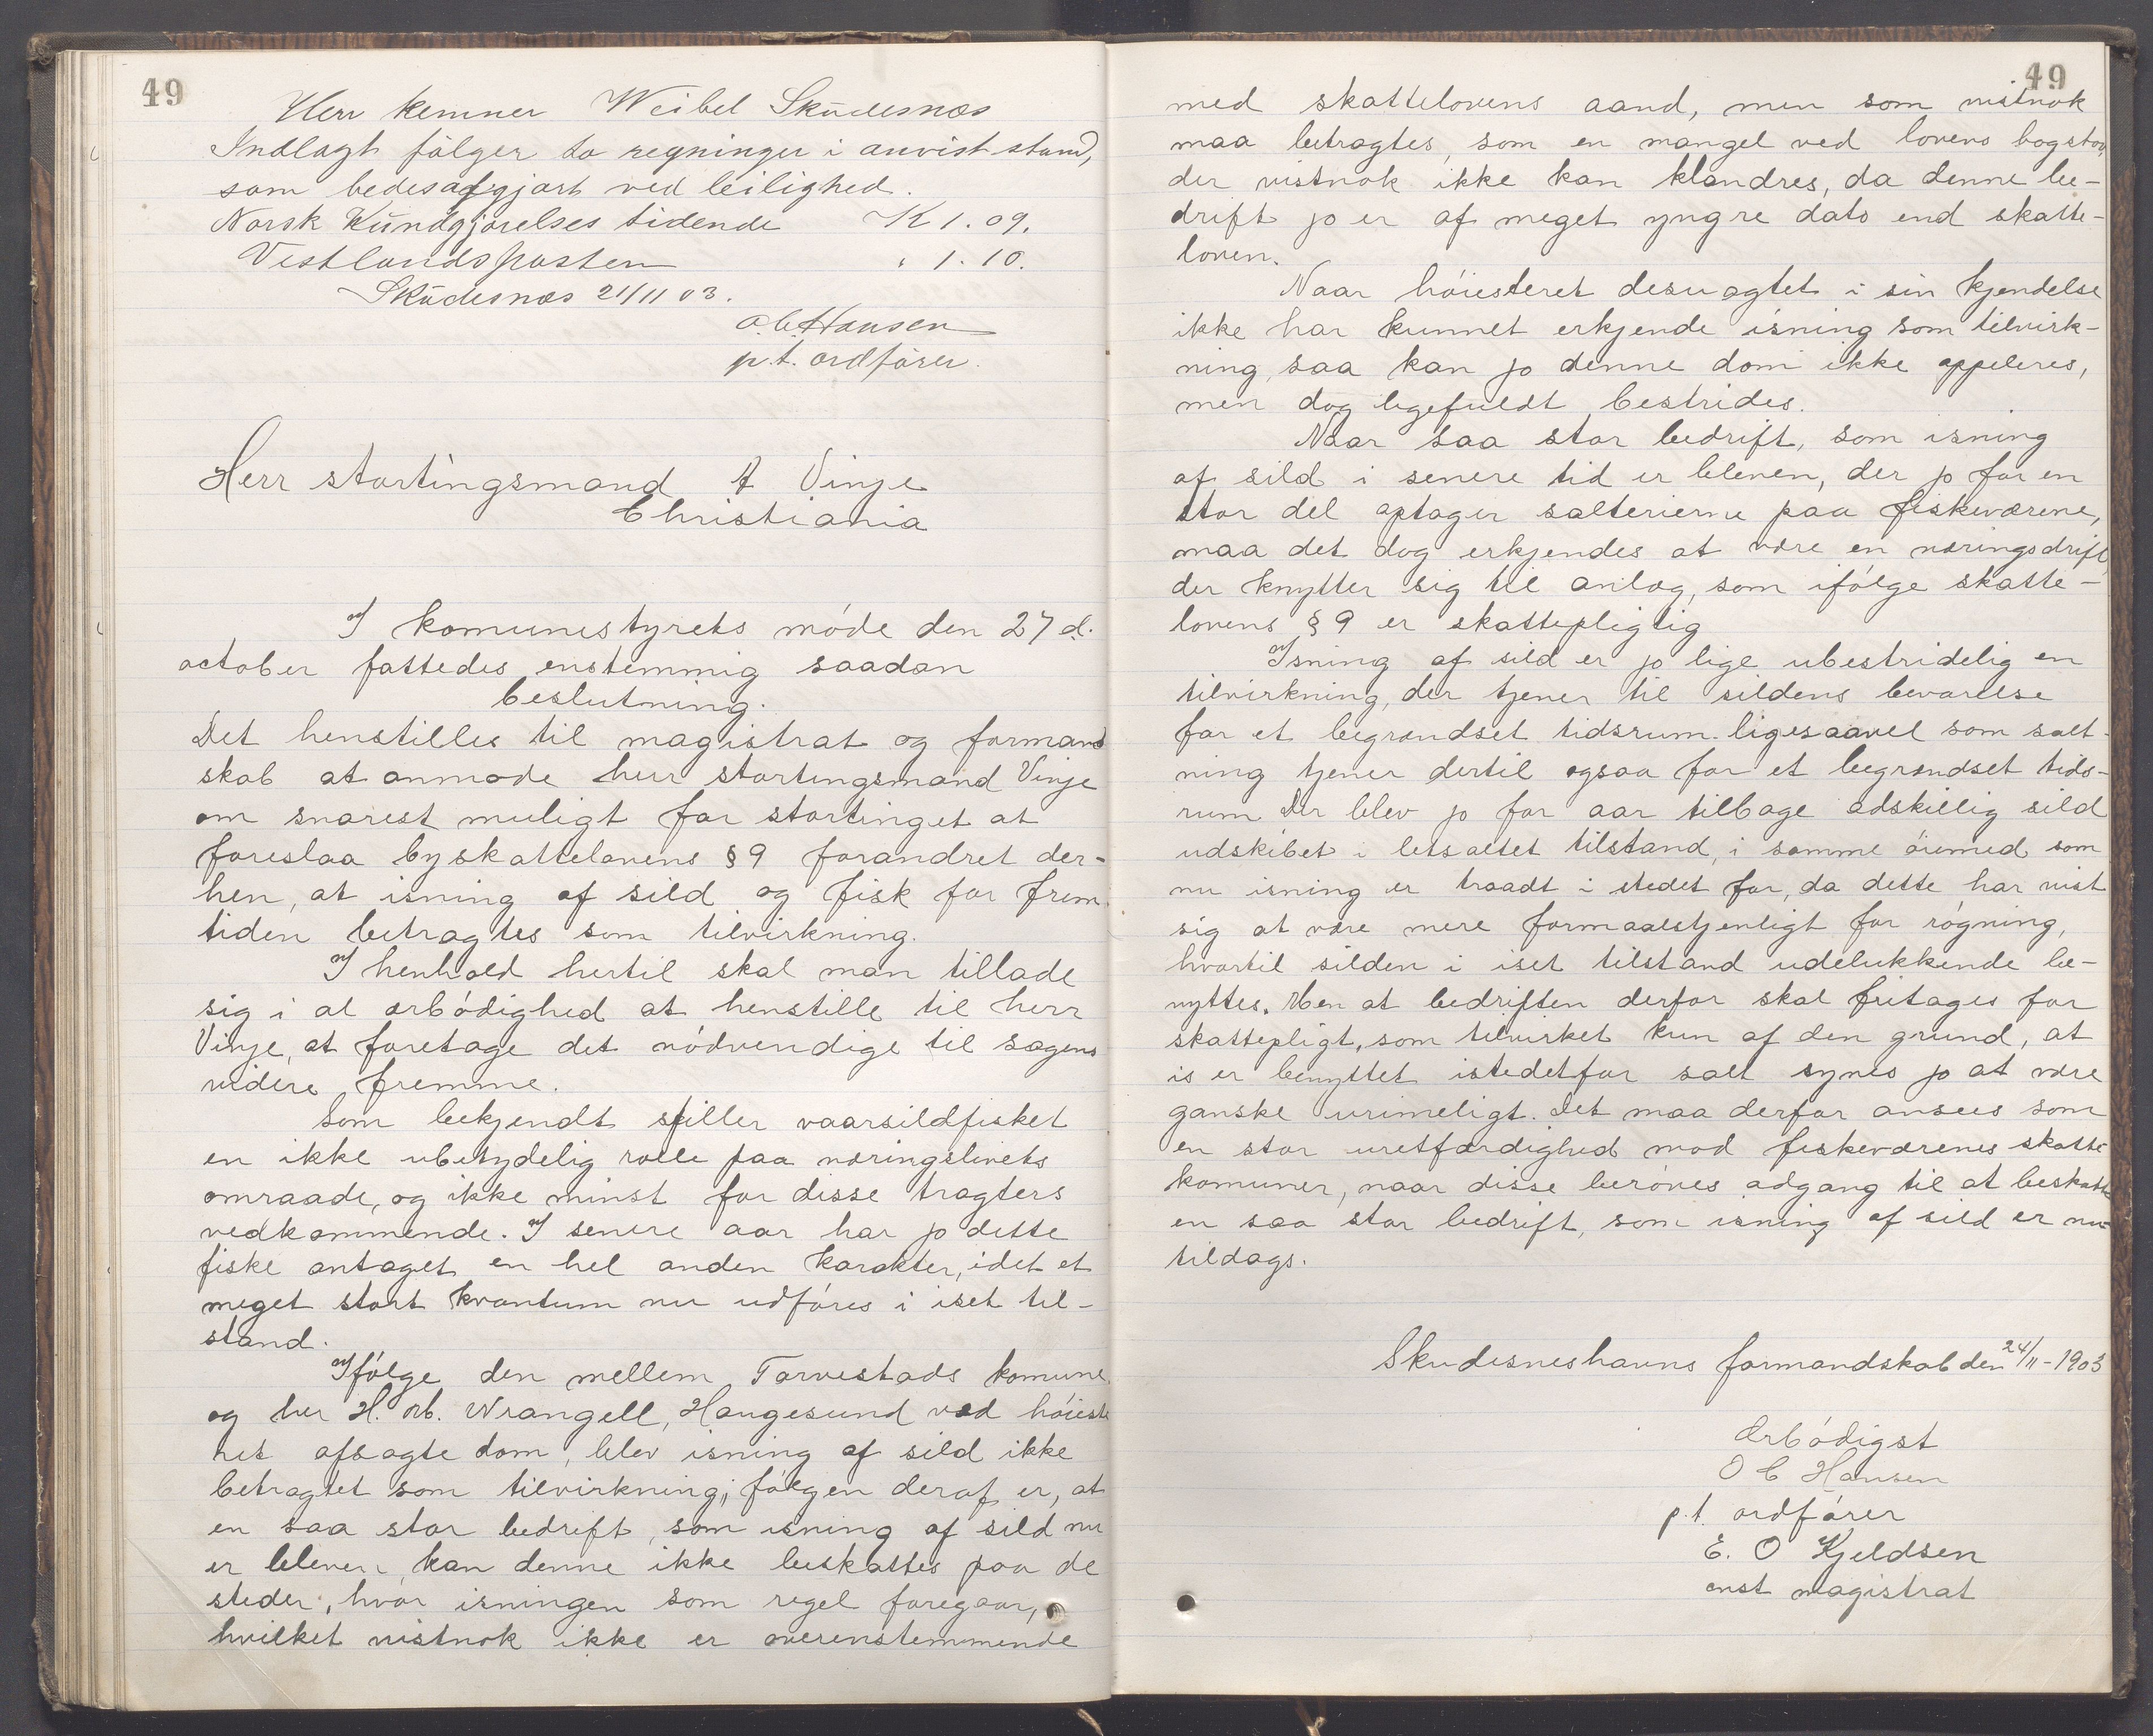 49
Herr Kemner Weibel Skudesnæs
Indlagt følger to regninger i anvist stand,
som bedes afgjort ved leilighed.
Norsk Kundgjørelses tidende K 1.09.
Vestlandsposten " 1.10.
Skudesnæs 21/11 03.
O.C. Hansen
p.t. ordfører.
Herr stortingsmand A Vinje
Christiania
I komunestyrets møde den 27 d.
october fattedes enstemmig saadan
beslutning.
Det henstilles til magistrat og formand
skab at anmode herr stortingsmand Vinje
om snarest muligt for stortinget at
foreslaa byskattelovens § 9 forandret der-
hen, at isning af sild og fisk for frem-
tiden betragtes som tilvirkning.
I henhold hertil skal man tillade
sig i al ærbødighed at henstille til herr
Vinje, at foretage det nødvendige til sagens
videre fremme.
Som bekjendt spiller vaarsildfisket
en ikke ubetydelig rolle paa næringslivets
omraade, og ikke minst for disse tragters
vedkommende. I senere aar har jo dette
fiske antaget en hel anden karakter, idet et
meget stort kvantum nu udføres i iset til-
stand.
Ifølge den mellem Torvestads komune
og her H. M. Wrangell, Haugesund ved høieste
ret afsagte dom, blev isning af sild ikke
betragtet som tilvirkning; følgen deraf er, at
en saa stor bedrift, som isning af sild nu
er bleven, kan denne ikke beskattes paa de
steder, hvor isningen som regel foregaar,
hvilket vistnok ikke er overenstemmende
49
med skattelovens aand, men som vistnok
maa betragtes, som en mangel ved lovens bogstav,
der vistnok ikke kan klandres, da denne be-
drift jo er af meget yngre dato end skatte-
loven.
Naar høiesteret desuagtet i sin kjendelse
ikke har kunnet erkjende isning som tilvirk-
ning, saa kan jo denne dom ikke appeleres,
men dog ligefuldt bestrides.
Naar saa stor bedrift, som isning
af sild i senere tid er bleven, der jo for en
stor del optager salterierne paa fiskeværene,
maa det dog erkjendes at være en næringsdrift
der knytter sig til anlæg, som ifølge skatte-
lovens § 9 er skattepligtig
Isning af sild er jo lige ubestridelig en
tilvirkning, der tjener til sildens bevarelse
for et begrændset tidsrum ligesaavel som salt-
ning tjener dertil ogsaa for et begrændset tids-
rum Der blev jo for aar tilbage adskillig sild
udskibet i letsaltet tilstand, i samme øiemed som
nu isning er traadt i stedet for, da dette har vist
sig at være mere formaalstjenligt for røgning,
hvortil silden i iset tilstand udelukkende be-
nyttes. Men at bedriften derfor skal fritages for
skattepligt, som tilvirket kun af den grund, at
is er benyttet istedetfor salt synes jo at være
ganske urimeligt. Det maa derfor ansees som
en stor uretfærdighed mod fiskeværenes skatte
komuner, naar disse berøves adgang til at beskatte
en saa stor bedrift, som isning af sild er nu
tildags.
Skudesneshavns formandskab den 24/11-1903
Ærbødigst
O C Hansen
p.t. ordfører
E. O Kjeldsen
const magistrat